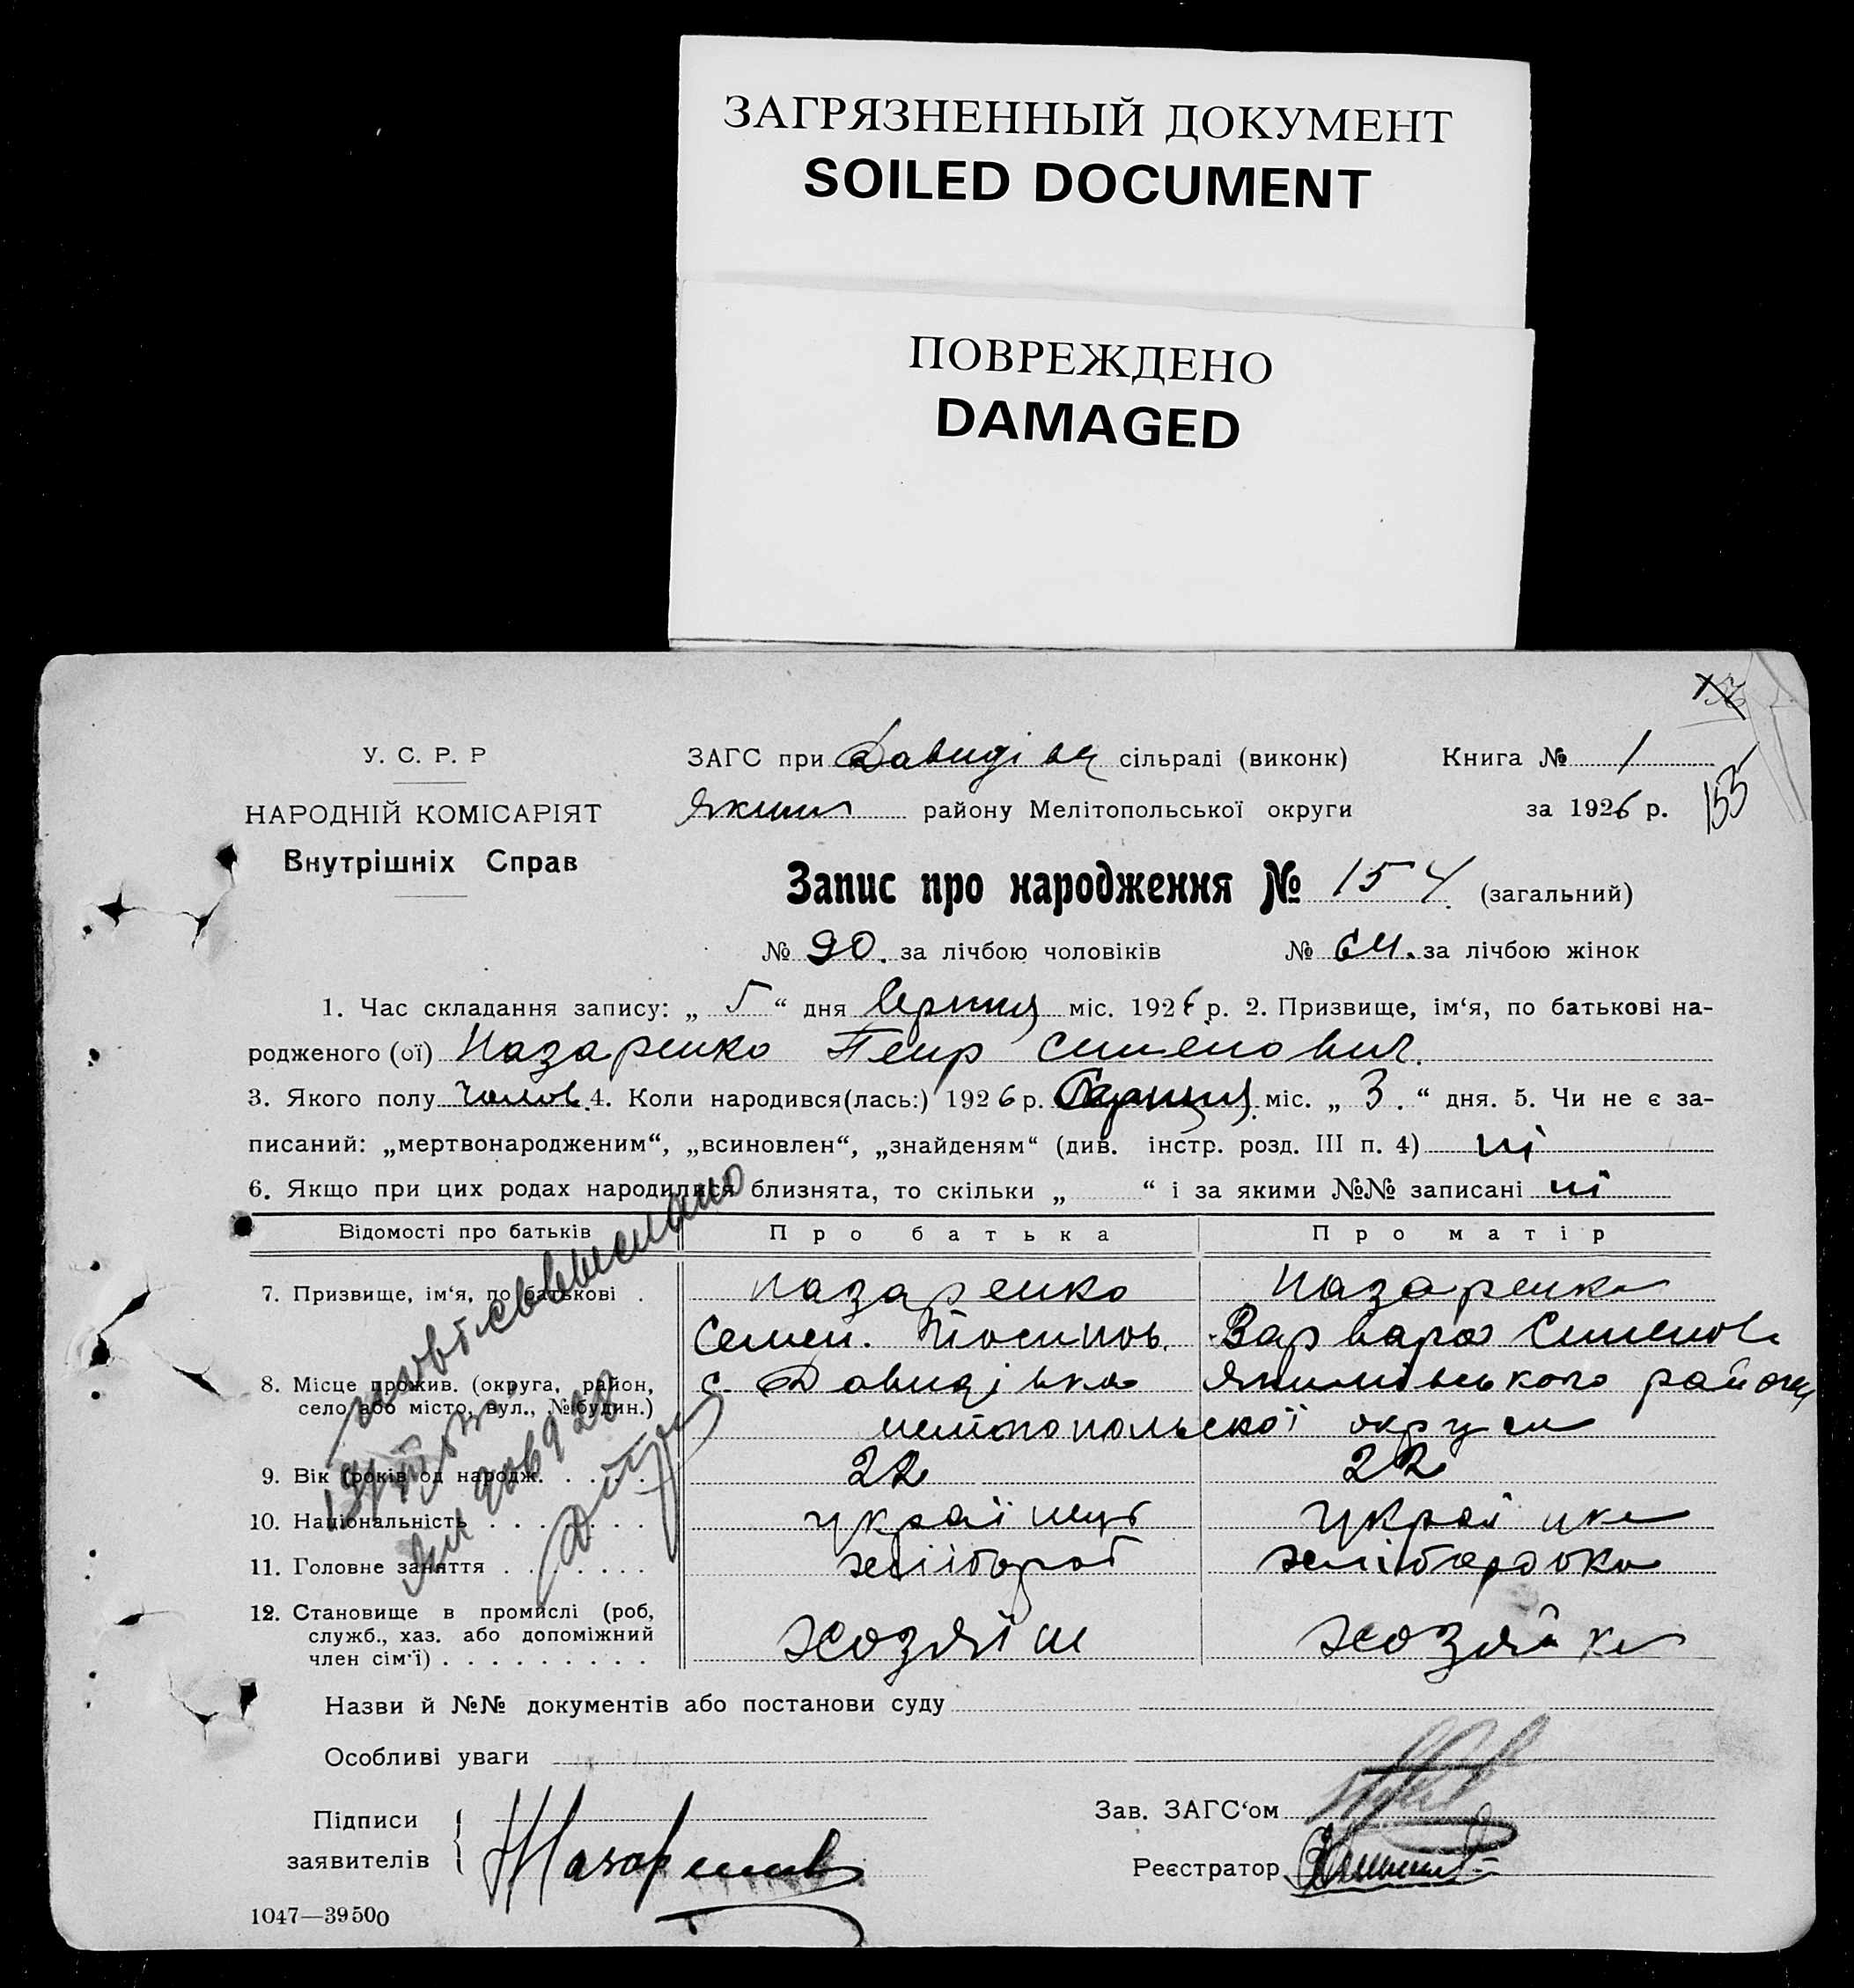 ЗАГРЯЗНЕННЫЙ ДОКУМЕНТ
SOILED DOCUMENT
ПОВРЕЖДЕНО
DAMAGED
У. С. Р. Р
НАРОДНІЙ КОМІСАРІЯТ
Внутрішніх Справ
ЗАГС при Давидівц сільраді (виконк)
Яким району Мелітопольської округи
Книга № 1
за 1926 р.
155
Запис про народження № 154 (загальний)
№ 90. за лічбою чоловіків № 64. за лічбою жінок
1. Час складання запису: „ 5 “ дня Серпня міс. 1926 р. 2. Призвище, ім‘я, по батькові на-
родженого (ої) Назаренко Петр Семенович.
3. Якого полу Чолов. 4. Коли народився(лась:) 1926 р. Серпня міс. „ 3. “ дня. 5. Чи не є за-
писаний: „мертвонародженим“, „всиновлен“, „знайденям“ (див. інстр. розд. III п. 4) ні
6. Якщо при цих родах народилися близнята, то скільки „ “ і за якими №№ записані ні
Відомості про батьків Про батька Про матір
7. Призвище, ім‘я, по батькові . Назаренко Назаренко
Семен. Йосипов. Варвара Семенов
8. Місце прожив. (округа, район, с. Давидівка Якимівського району
село або місто, вул., № будин.) мелітопольскої округи
9. Вік (років од народж. . . . . . 22 22
10. Національність . . . . . . . українец українка
11. Головне заняття . . . . . . . хлібороб хліборобка
12. Становище в промислі (роб,
служб., хаз. або допоміжний
член сім‘ї) . . . . . . . . . хозяїн хозяйка
Назви й №№ документів або постанови суду
Особливі уваги
Підписи
заявителів Назаренко
Зав. ЗАГС‘ом
Реєстратор
1047—39500